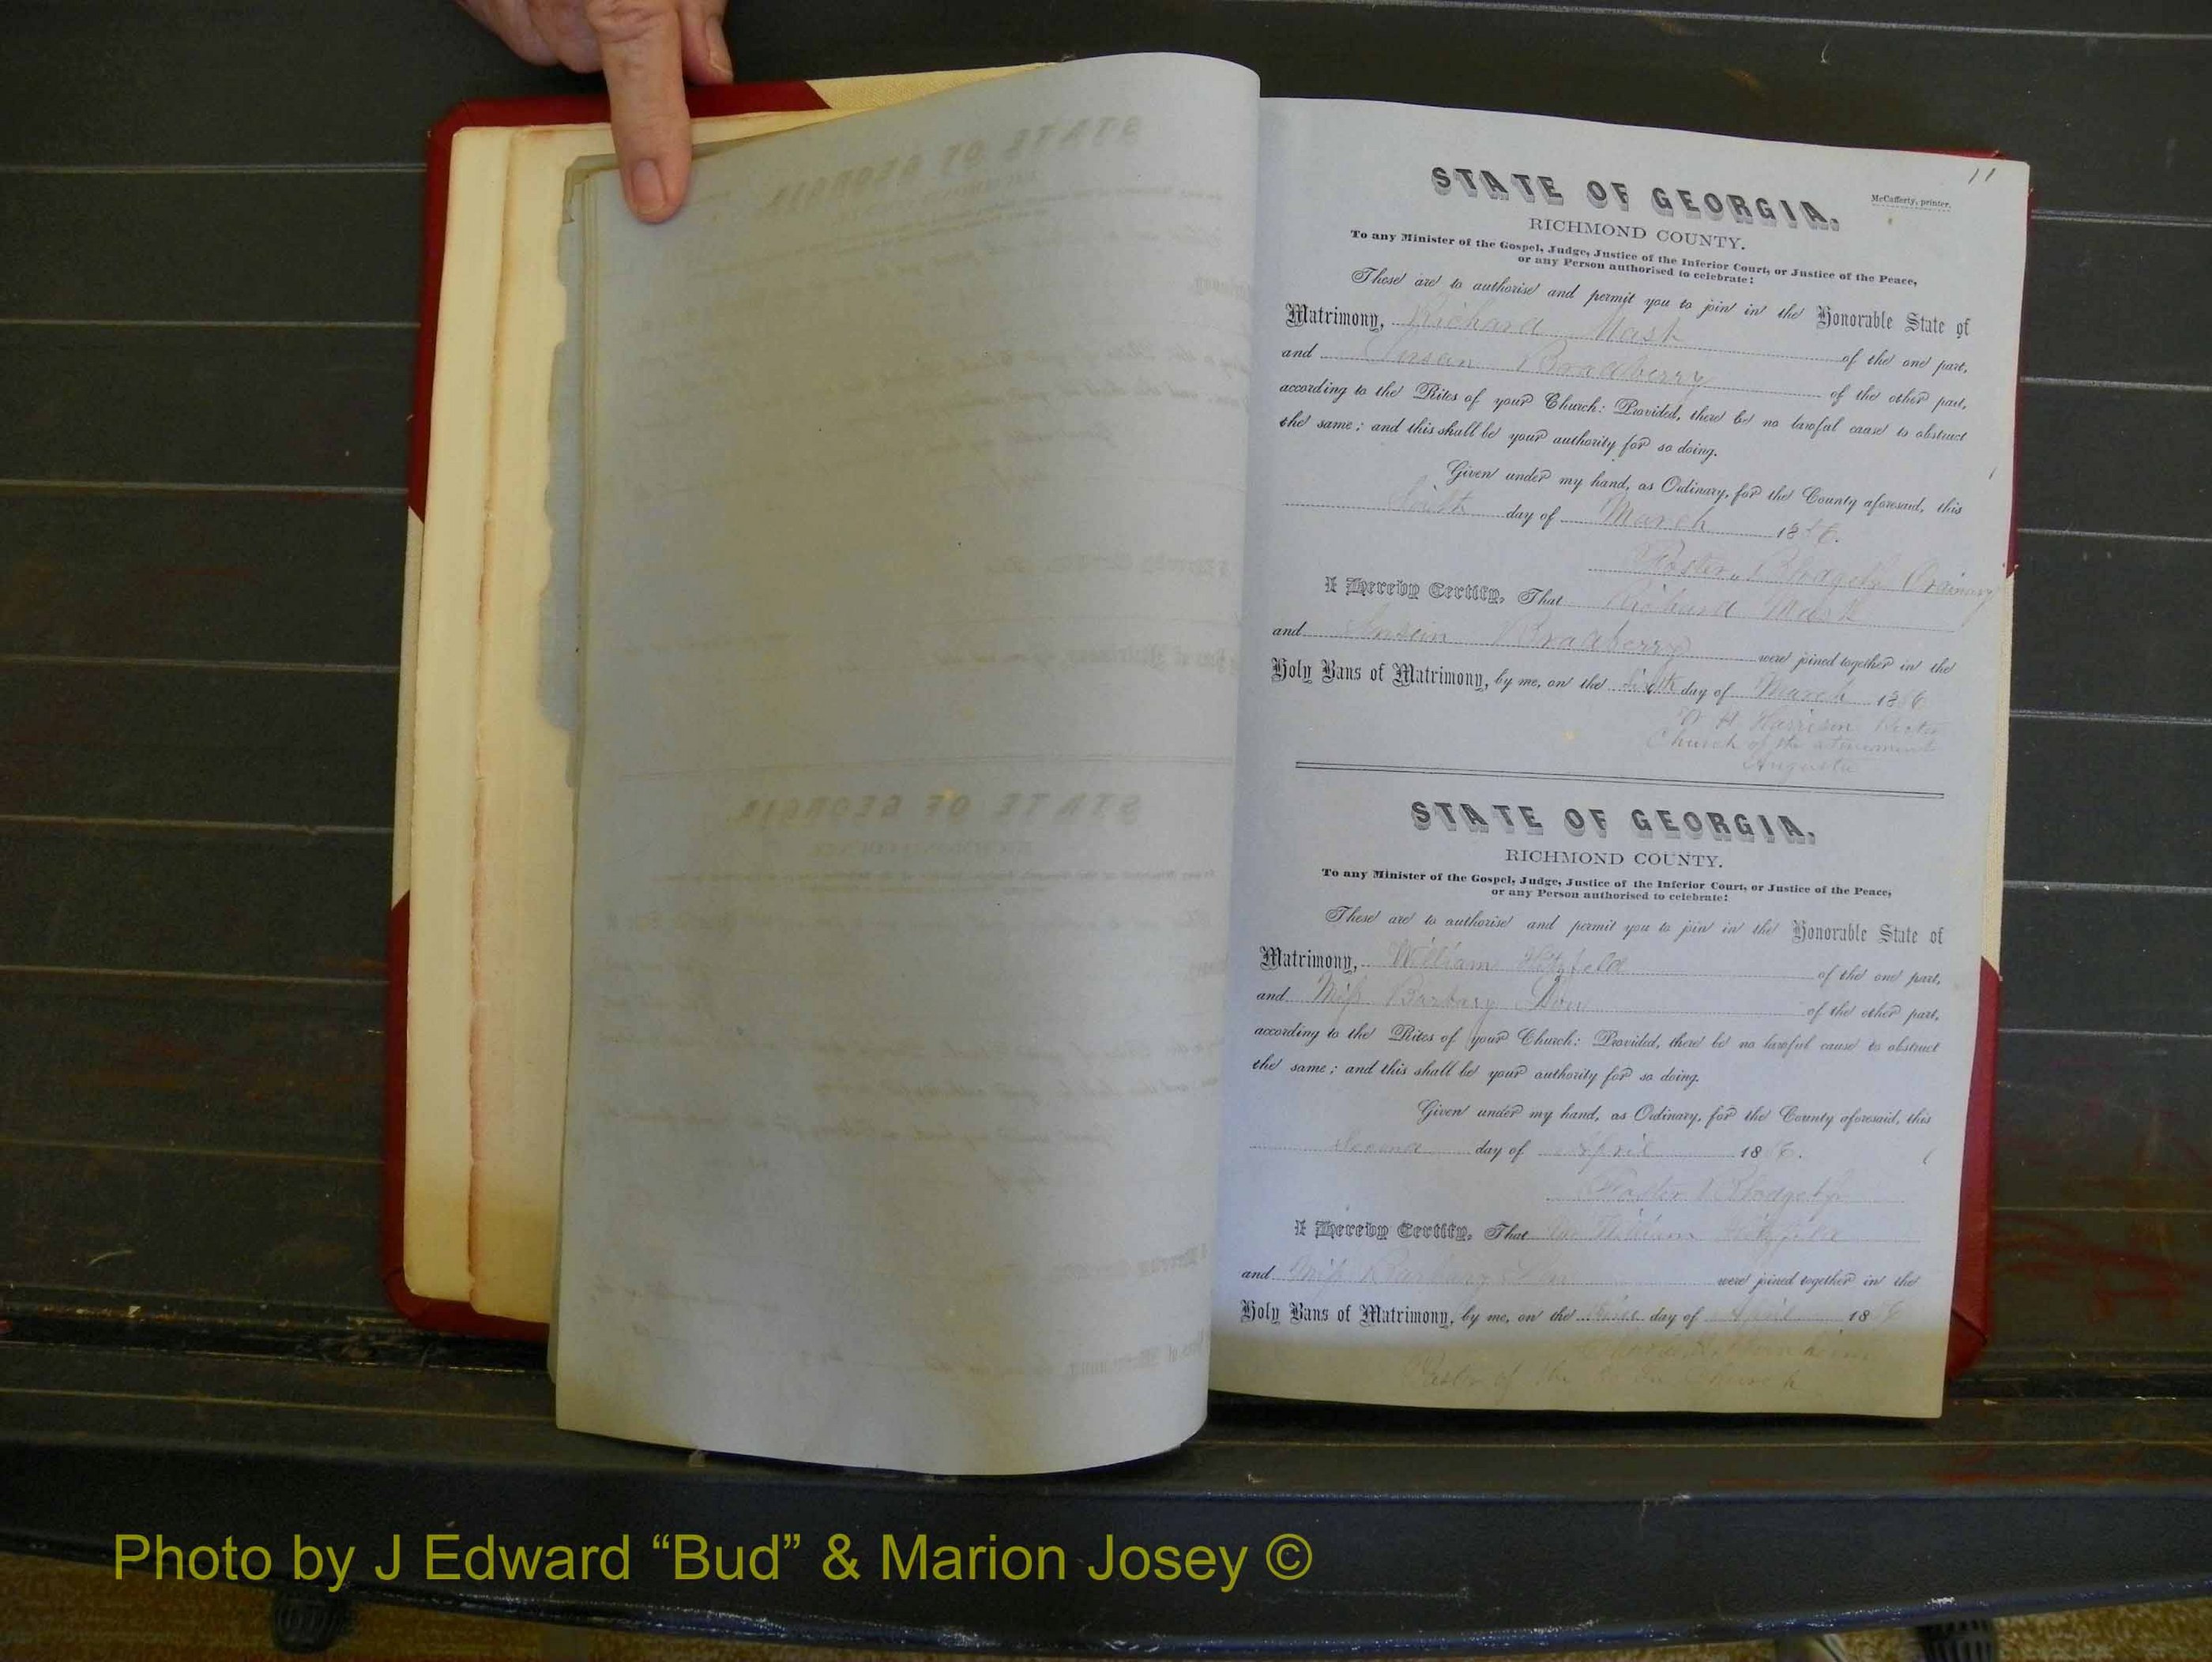 11
STATE OF GEORGIA,
McCafferty, printer.
RICHMOND COUNTY.
To any Minister of the Gospel, Judge, Justice of the Inferior Court, or Justice of the Peace,
or any Person authorised to celebrate:
These are to authorise and permit you to join in the Honorable State of
Matrimony, Richard Mash of the one part,
and Susan Bradberry of the other part,
according to the Rites of your Church: Provided, there be no lawful cause to obstruct
the same; and this shall be your authority for so doing.
Given under my hand, as Ordinary, for the County aforesaid, this
Sixth day of March 1866.
Foster Blodgett Ordinary
I Hereby Certify, That Richard Mash
and Susan Bradberry were joined together in the
Holy Bans of Matrimony, by me, on the Sixth day of March 1866
W H Harrison Rector
Church of the Atonement
Augusta
STATE OF GEORGIA,
RICHMOND COUNTY.
To any Minister of the Gospel, Judge, Justice of the Inferior Court, or Justice of the Peace,
or any Person authorised to celebrate:
These are to authorise and permit you to join in the Honorable State of
Matrimony, William of the one part,
and Miss Barbary of the other part,
according to the Rites of your Church: Provided, there be no lawful cause to obstruct
the same; and this shall be your authority for so doing.
Given under my hand, as Ordinary, for the County aforesaid, this
Second day of April 1866.
Foster Blodgett
I Hereby Certify, That William
and Miss Barbary were joined together in the
Holy Bans of Matrimony, by me, on the day of April 18
Pastor of the Church
Photo by J Edward “Bud” & Marion Josey ©